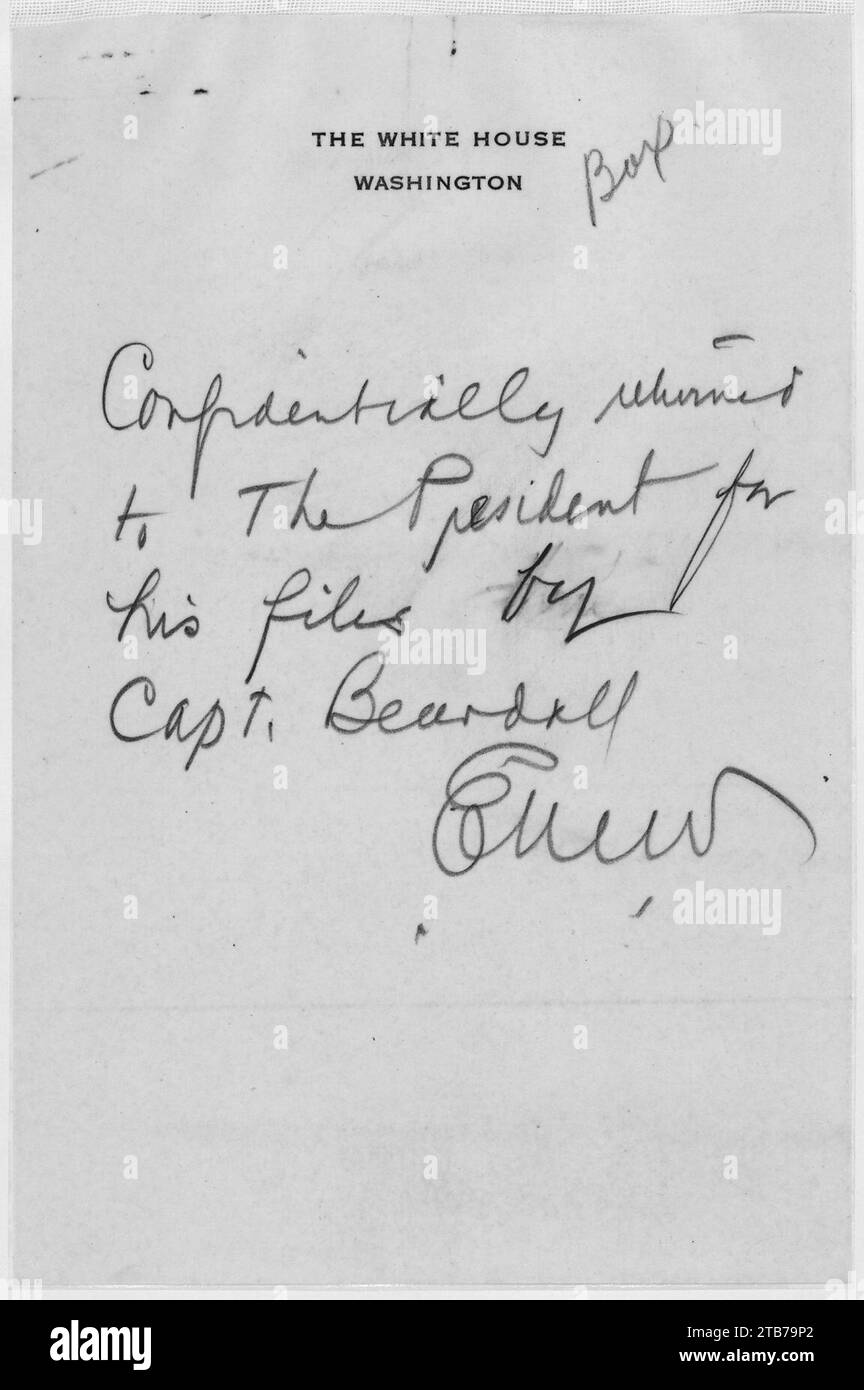 THE WHITE HOUSE
WASHINGTON
Box
Confidentially returned
to The President for
his files by
Capt. Beardall
alamy
Image ID: 2TB79P2
www.alamy.com